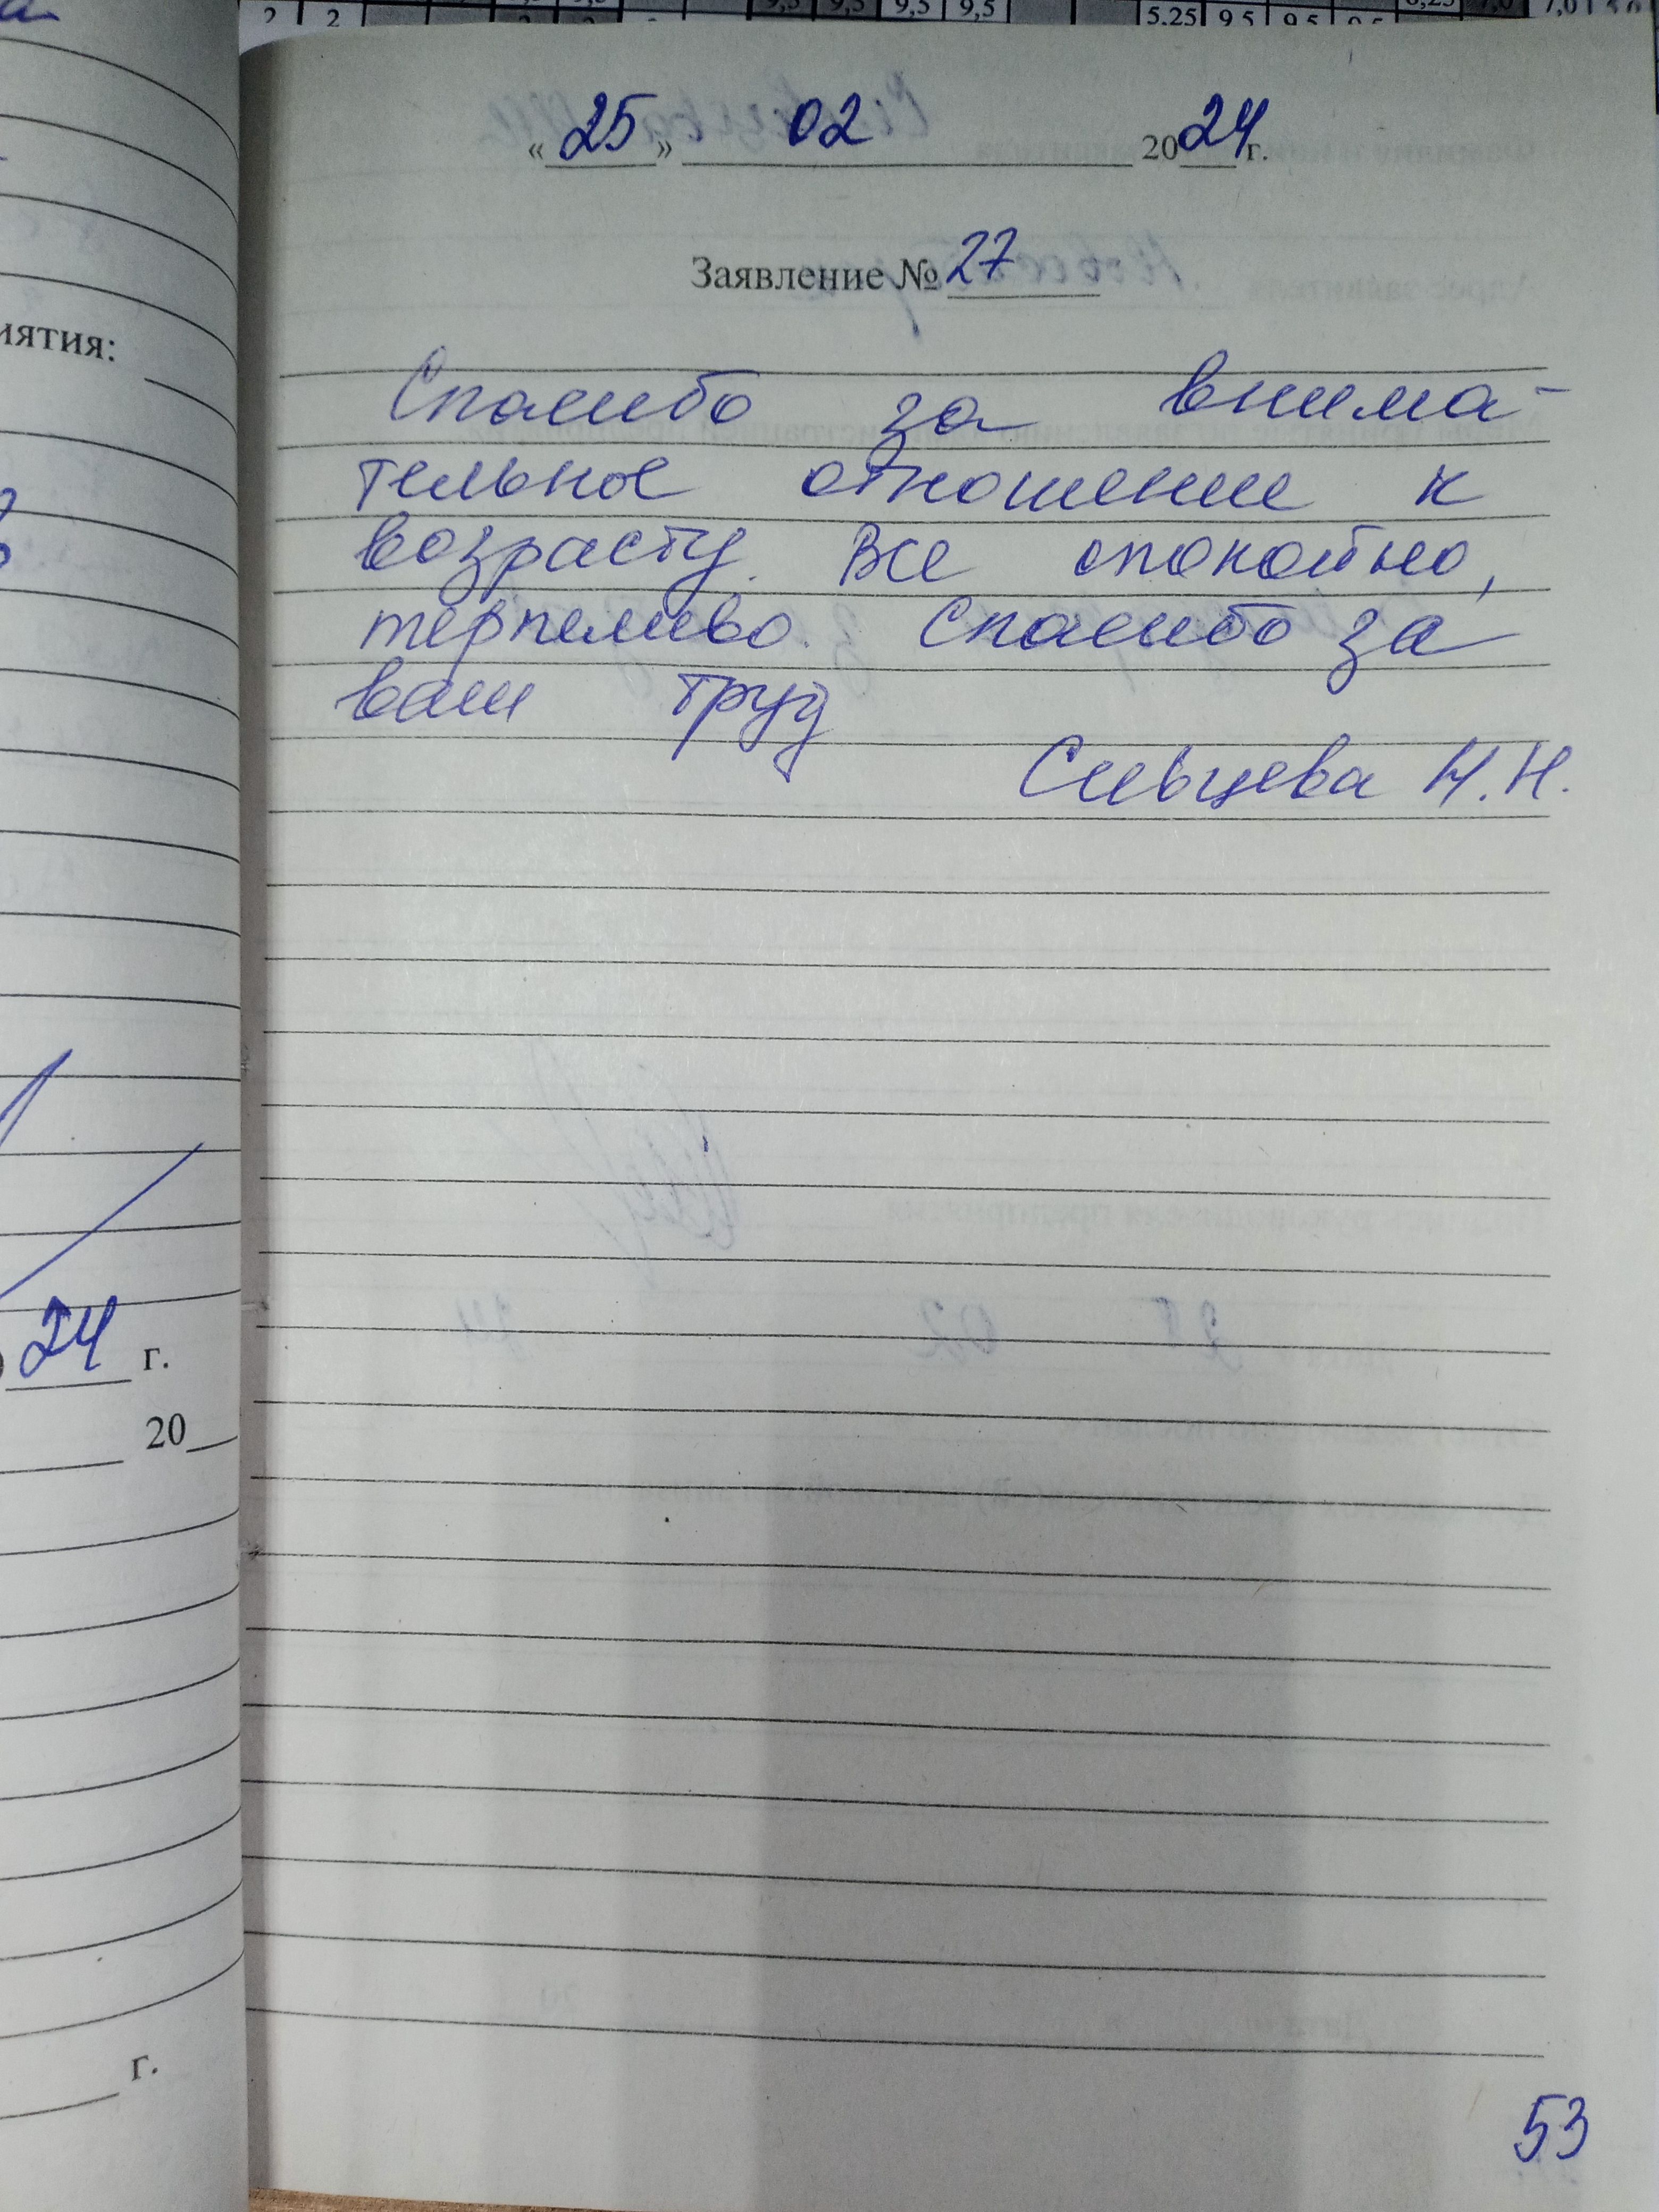 2 2 9,5 9,5 9,5 9,5 5,25 9,5 9,5
«25» 02 2024 г.
Заявление № 27
иятия:
Спасибо за внима-
тельное отношение к
возрасту. Все спокойно,
терпеливо. Спасибо за
ваш труд
Сивцева Н.Н.
24 г.
20
г.
53